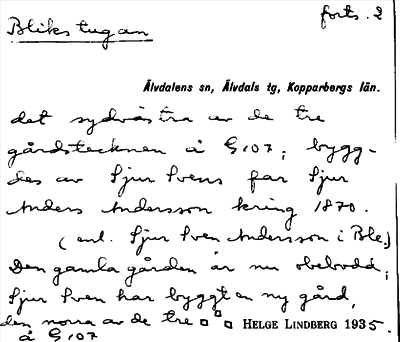 forts. 2
Blikstugan
Älvdalens sn, Älvdals tg, Kopparbergs län.
det sydvästra av de tre
gårdstecknen å G107; bygg-
des av Sjur Svens far Sjur
Anders Andersson kring 1870.
(enl. Sjur Sven Andersson i Ble.)
Den gamla gården är nu obebodd;
Sjur Sven har byggt en ny gård,
den norra av de tre
HELGE LINDBERG 1935.
å G107